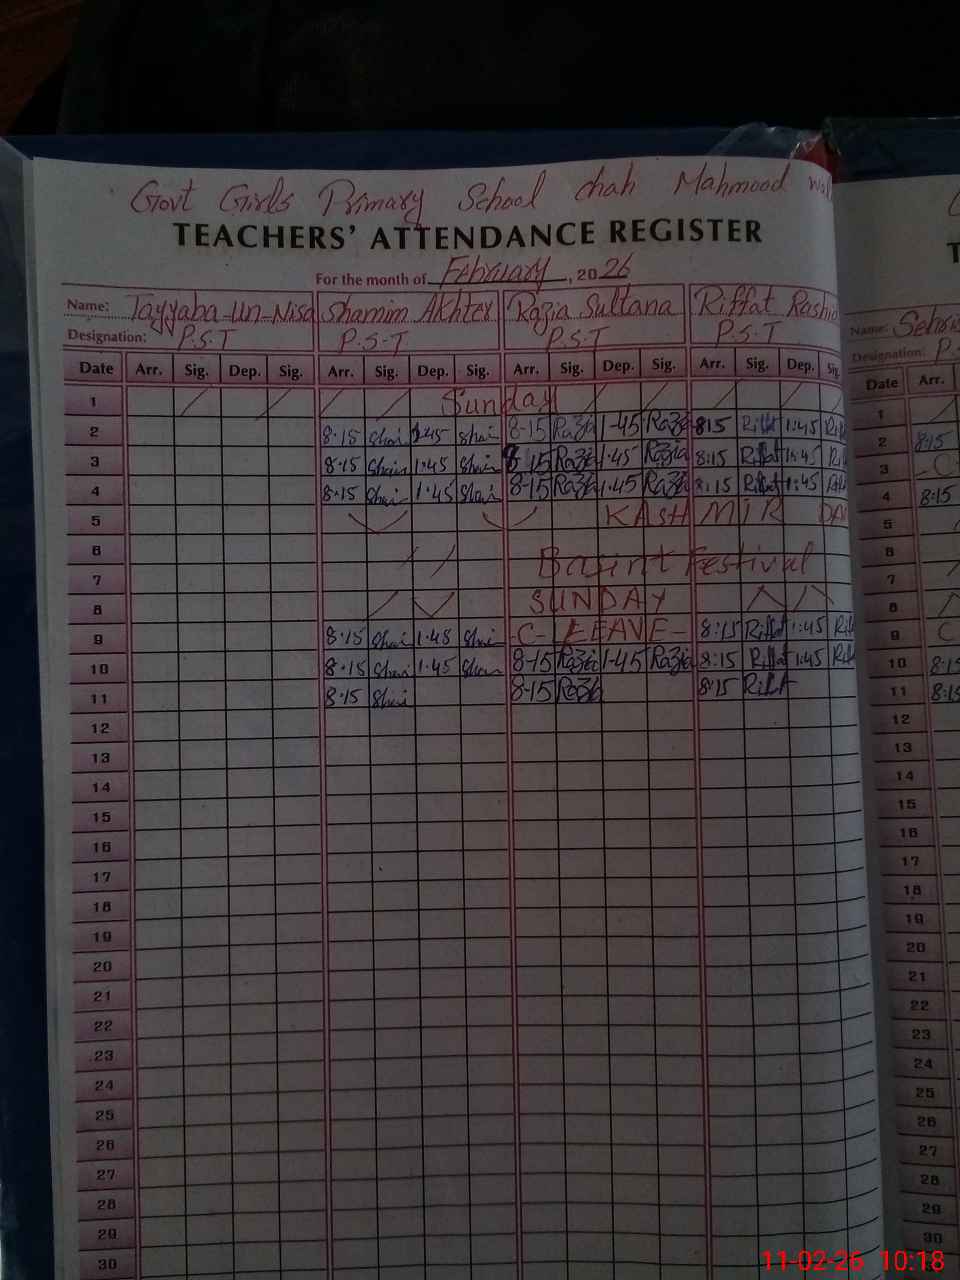 Govt Girls Primary School chah Mahmood
TEACHERS' ATTENDANCE REGISTER
For the month of February, 2026
Name: Tayyaba-un-Nisa Shamim Akhter Razia Sultana Riffat Rashid
Designation: P.S.T P.S.T P.S.T P.S.T
Date Arr. Sig. Dep. Sig. Arr. Sig. Dep. Sig. Arr. Sig. Dep. Sig. Arr. Sig. Dep. Sig
1 Sunday
2 8:15 1:45 8-15 Razia 1-45 Razia 8:15 Riffat 1:45
3 8:15 1:45 8-15 Razia 1-45 Razia 8:15 Riffat 1:45
4 8:15 1:45 8-15 Razia 1-45 Razia 8:15 Riffat 1:45
5 KASHMIR DA
6 Basint Festival
7
8 SUNDAY
9 8:15 1:45 -C-LEAVE- 8:15 Riffat 1:45
10 8:15 1:45 8-15 Razia 1-45 Razia 8:15 Riffat 1:45
11 8:15 8-15 Razia 8:15 Riffat
12
13
14
15
16
17
18
19
20
21
22
23
24
25
26
27
28
29
30
Name:
Designation: P.
Date Arr.
1
2 8:15
3 C
4 8:15
5
6
7
8
9 C
10 8:15
11 8:15
12
13
14
15
16
17
18
19
20
21
22
23
24
25
26
27
28
29
30
11-02-26 10:18